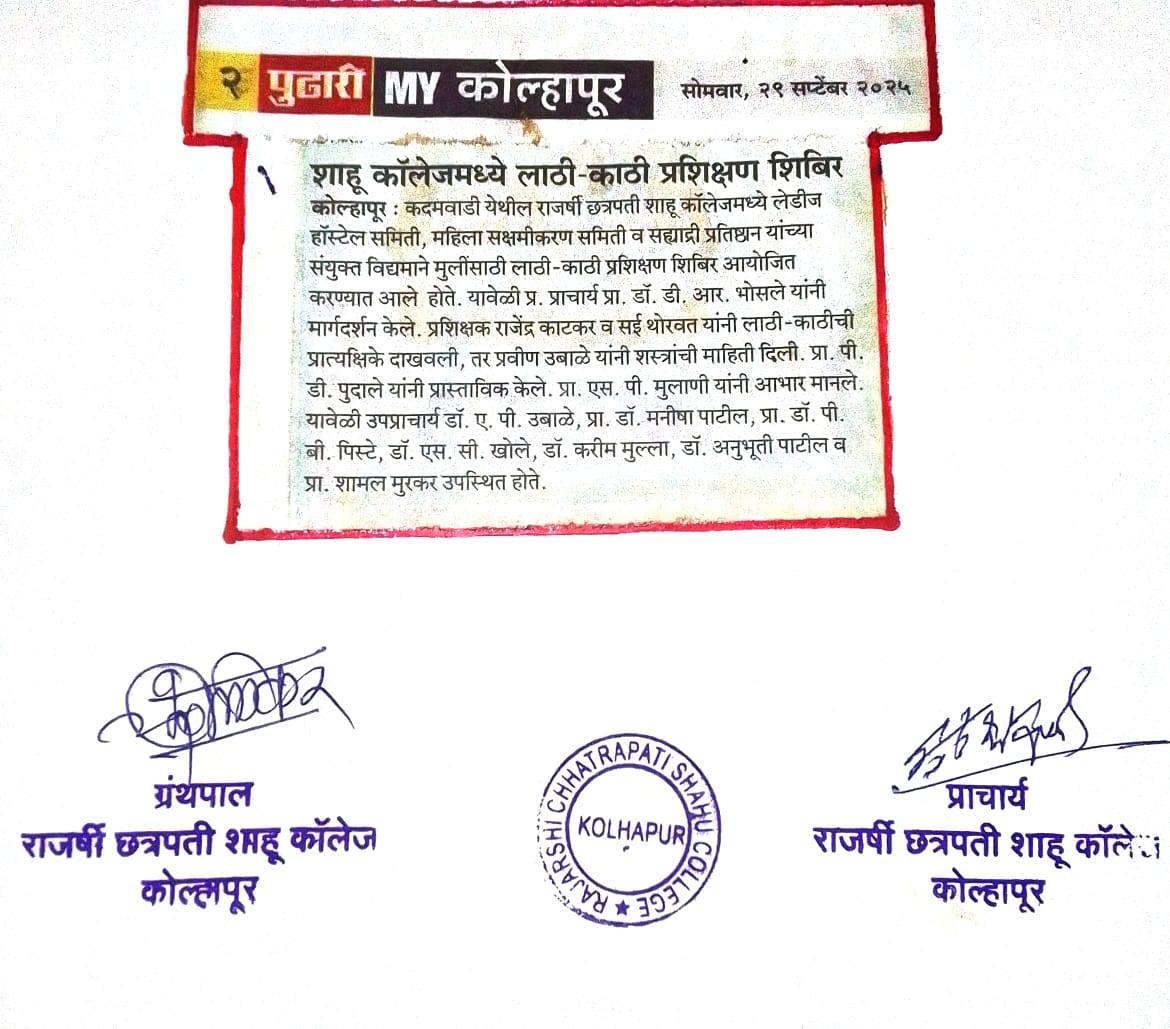 २ पुढारी MY कोल्हापूर सोमवार, २९ सप्टेंबर २०२५
शाहू कॉलेजमध्ये लाठी-काठी प्रशिक्षण शिबिर
कोल्हापूर : कदमवाडी येथील राजर्षी छत्रपती शाहू कॉलेजमध्ये लेडीज
हॉस्टेल समिती, महिला सक्षमीकरण समिती व सह्याद्री प्रतिष्ठान यांच्या
संयुक्त विद्यमाने मुलींसाठी लाठी-काठी प्रशिक्षण शिबिर आयोजित
करण्यात आले होते. यावेळी प्र. प्राचार्य प्रा. डॉ. डी. आर. भोसले यांनी
मार्गदर्शन केले. प्रशिक्षक राजेंद्र काटकर व सई थोरवत यांनी लाठी-काठीची
प्रात्यक्षिके दाखवली, तर प्रवीण उबाळे यांनी शस्त्रांची माहिती दिली. प्रा. पी.
डी. पुदाले यांनी प्रास्ताविक केले. प्रा. एस. पी. मुलाणी यांनी आभार मानले.
यावेळी उपप्राचार्य डॉ. ए. पी. उबाळे, प्रा. डॉ. मनीषा पाटील, प्रा. डॉ. पी.
बी. पिस्टे, डॉ. एस. सी. खोले, डॉ. करीम मुल्ला, डॉ. अनुभूती पाटील व
प्रा. शामल मुरकर उपस्थित होते.
ग्रंथपाल
राजर्षी छत्रपती शाहू कॉलेज
कोल्हापूर
RAJARSHI CHHATRAPATI SHAHU COLLEGE ★
KOLHAPUR
प्राचार्य
राजर्षी छत्रपती शाहू कॉलेज
कोल्हापूर